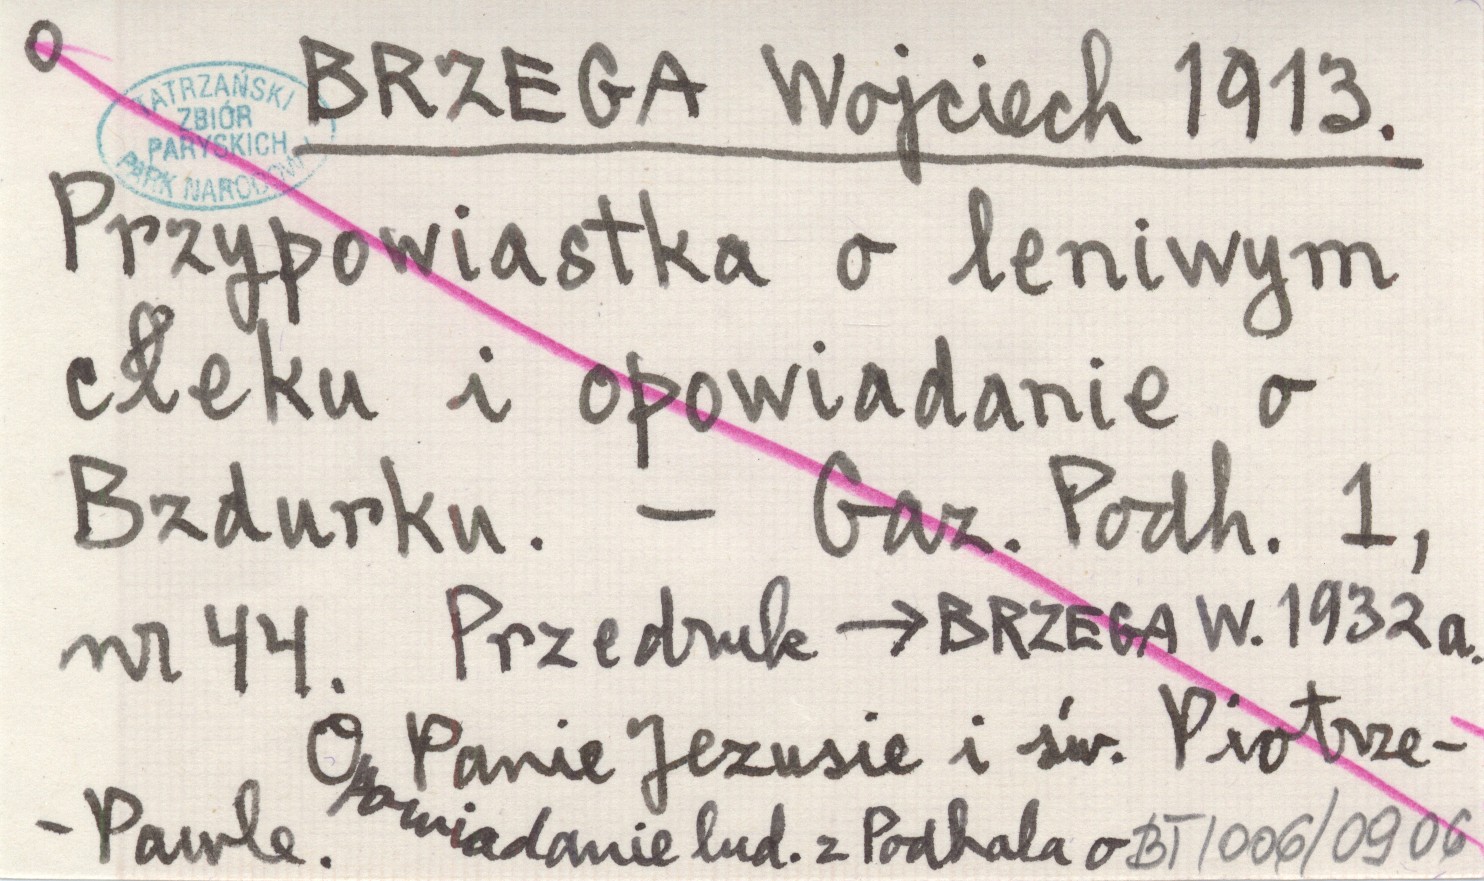 O
TATRZAŃSKI
ZBIÓR
PARYSKICH
PARK NARODOWY
BRZEGA Wojciech 1913.
Przypowiastka o leniwym
cłeku i opowiadanie o
Bzdurku. - Gaz. Podh. 1,
nr 44. Przedruk → BRZEGA W. 1932a.
O Panie Jezusie i św. Piotrze-
-Pawle. Powiadanie lud. z Podhala o
BT/006/0906